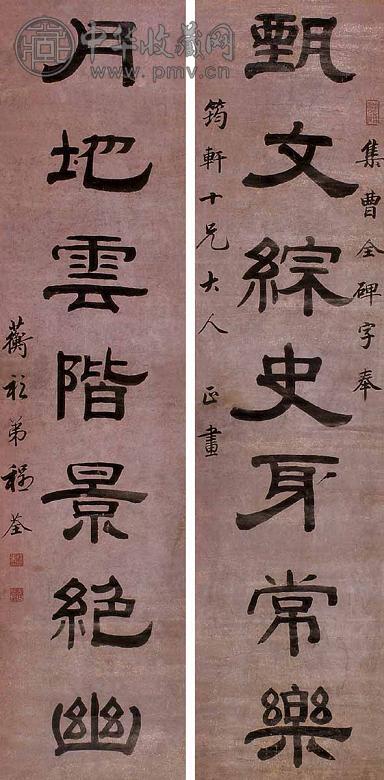 中华收藏网
www.pmv.cn
集曹全碑字奉
甄文綜史身常樂
筠軒十兄大人 正畫
月地雲階景絕幽
蘅衫弟程荃